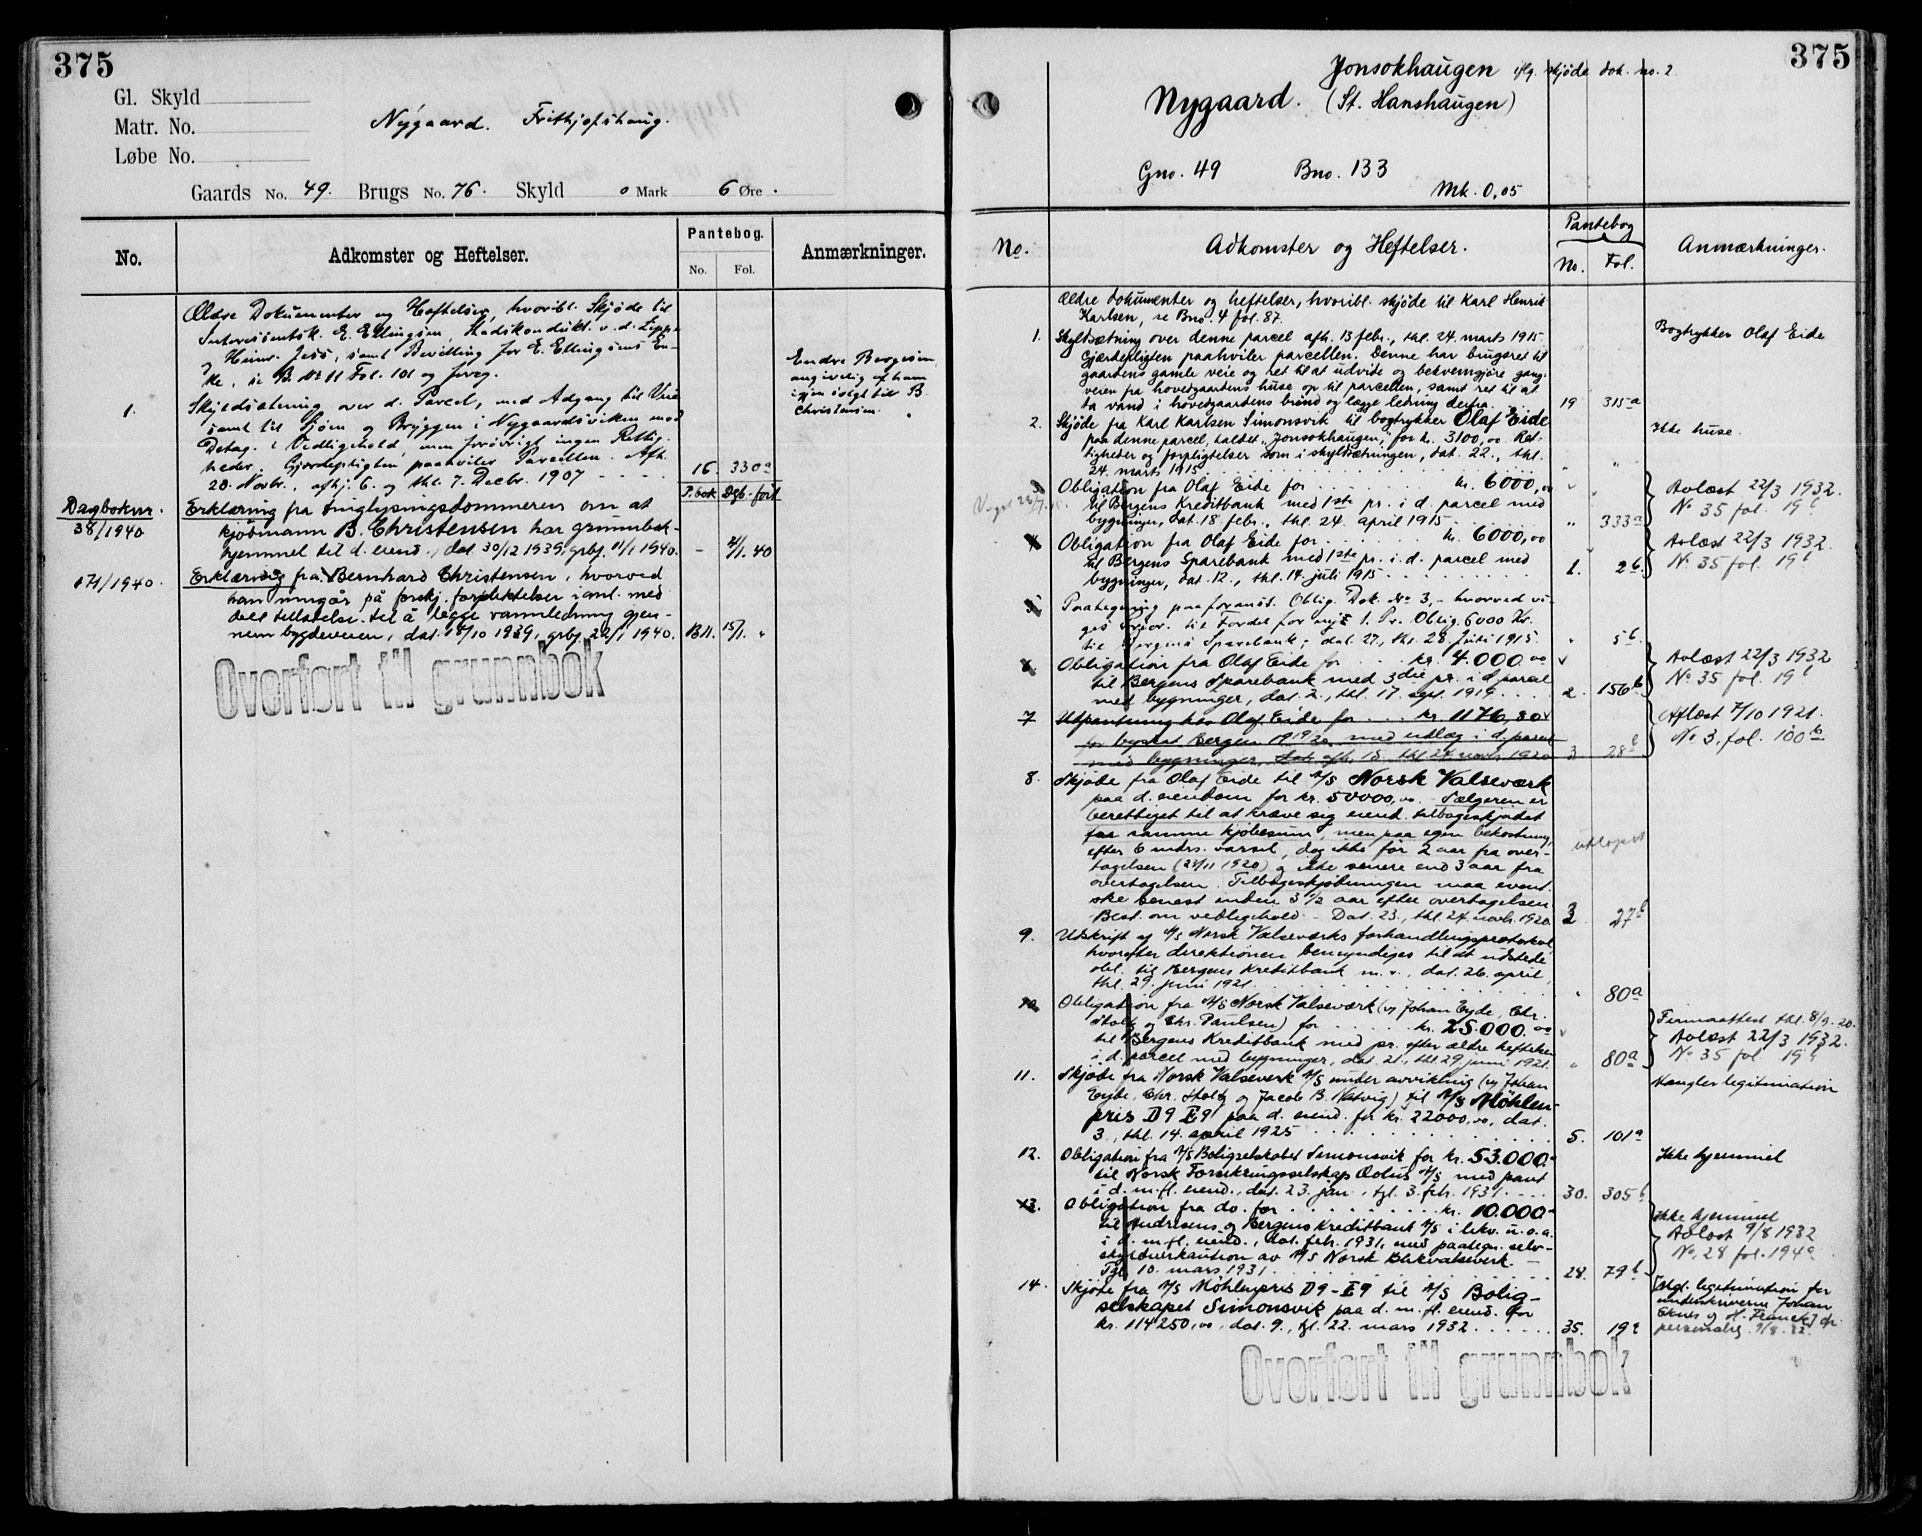 375
Gl. Skyld
Matr. No.
Løbe No.
Nygaard. Frithjofshaug.
Gaards No. 49. Brugs No. 76. Skyld 0 Mark 6 Øre.
No. Adkomster og Heftelser. Pantebog. No. Fol. Anmærkninger.
Ældre Dokumenter og Heftelser, hvoribl. Skjøde til
E. Ellingsen,
og Henr. Jess, samt Bevilling for E. Ellingsens En-
ke, se B. No 11 Fol. 101 og forrg.
1. Skyldsætning over d. Parcel, med Adgang til Veie
samt til Sjøen og Bryggen i Nygaardsviken mod
Deltag. i Vedligehold, men forøvrigt ingen Rettig-
heder. Gjerdepligten paahviler Parcellen. Afh.
20. Novbr., afhj. 6. og thl. 7. Decbr. 1907 - - - - 16. 330a
Endre Borgesen
angivelig af ham
igjen solgt til B.
Christensen.
P.bok Dgb.-ført
Dagboknr.
38/1940
Erklæring fra tinglysingsdommeren om at
kjøbmann B. Christensen har grunnbok-
hjemmel til d. eiend., dat. 30/12 1939, grbf. 11/1 1940. - 1. 40
171/1940. Erklæring fra Bernhard Christensen, hvorved
han inngår på forskj. forpliktelser i anl. med
dell tillatelse til å legge vannledning gjen-
nem bygdeveien, dat. 18/10 1939, grbf. 22/1 1940. B11. 15/1. "
Overført til grunnbok
375
Jonsokhaugen iflg. skjøde dok. no. 2
Nygaard. (St. Hanshaugen)
Gno. 49 Bno. 133
Mk. 0,05
No. Adkomster og Heftelser. Pantebog No. Fol. Anmærkninger.
Ældre dokumenter og heftelser, hvoribl. skjøde til Karl Henrik
Karlsen, se Bno. 4 fol. 87.
Bogtrykker Olaf Eide
1. Skyldsætning over denne parcel afh. 13 febr., thl. 24. marts 1915.
Gjærdepligten paahviler parcellen. Denne har brugsret til
gaardens gamle veie og ret til at udvide og bekvemgjøre gang-
veien fra hovedgaardens huse op til parcellen, samt ret til at
ta vand i hovedgaardens brønd og lægge ledning derfra. 19 315a
2. Skjøde fra Karl Karlsen Simonsvik til bogtrykker Olaf Eide
paa denne parcel, kaldet "Jonsokhaugen", for kr. 3100,00. Ret-
tigheder og forpligtelser som i skyldsætningen, dat. 22., thl.
24. marts 1915 . . . " "
Ikke huse.
3 Obligation fra Olaf Eide for . . . kr. 6000,00
til Bergens Kreditbank med 1ste pr. i d. parcel med
bygninger, dat. 18 febr., thl. 24. april 1915 " 333a
Avlæst 22/3 1932.
No 35 fol. 19b
4 Obligation fra Olaf Eide for . . . kr. 6000,00
til Bergens Sparebank med 1ste pr. i. d. parcel med
bygninger, dat. 12., thl. 14. juli 1915 . . . 1. 2b.
Avlæst 22/3 1932.
No 35 fol. 19b
5 Paategning paa foranst. Oblig. Dok. No 3, - hvorved vi-
ges Prior. til Fordel for nye 1. Pr. Oblig. 6000 Kr.
til Bergens Sparebank; dat. 27., thl. 28. Juli 1915. " 5b
6. Obligation fra Olaf Eide for . . . kr. 4.000.00
til Bergens Sparebank med 3die pr. i d. parcel
med bygninger, dat. 2., thl. 17. sept. 1919 . . . 2. 156b
Avlæst 22/3 1932
No 35 fol. 19b
7 Utpantning hos Olaf Eide for . . . kr. 1176,80
for byskat Bergen 1919/20 med utlæg i d. parcel
med bygninger, afh. 15. thl. 24 novb. 1920 3 28b
Aflæst 7/10 1921.
No 3. fol. 100b
8. Skjøde fra Olaf Eide til A/S Norsk Valseværk
paa d. eiendom for kr. 50000,00. - Sælgeren er
berettiget til at kræve sig eiend. tilbageskjødet
for samme kjøbesum, men paa egen bekostning,
efter 6 mdrs. varsel, dog ikke før 2 aar fra over-
tagelsen (24/11 1920) og ikke senere end 3 aar fra
overtagelsen. Tilbageskjødningen maa event.
ske senest inden 3 1/2 aar efter overtagelsen
Best. om vedligehold. - Dat. 23., thl. 24. novb. 1920. 3 27b
utløpet
9. Utskrift af A/S Norsk Valseværks forhandlingsprotokol
hvorefter direktionen bemyndiges til at utstede
obl. til Bergens Kreditbank m. v., dat. 26. april,
thl. 29. juni 1921. . . . " 80a
10. Obligation fra A/S Norsk Valseværk (v/ Johan Eyde, Chr.
Stoltz og Chr. Paulsen) for . . . kr. 25.000.00
til Bergens Kreditbank med pr. efter ældre heftelser
i d. parcel med bygninger, dat. 21., thl. 29 juni 1921. " 80a
Firmaattest thl. 8/9.20.
Avlæst 22/3 1932.
No 35 fol. 19b
11. Skjøde fra Norsk Valseverk A/S under avvikling (v/ Johan
Eyde, Chr. Stoltz og Jacob B. Natvig) til A/S Møhlen-
pris D9 E9 paa d. eiend. for kr. 22000,00, dat.
3., thl. 14. april 1925 . . . 5. 101a
Mangler legitimation
12. Obligation fra A/S Boligselskabet Simonsvik for kr. 53.000.-
til Norsk Forsikringsselskap Æolus A/S med pant
i d. m. fl. eiend., dat. 23. jan., tgl. 3. feb. 1931. . . . 30. 305b
Ikke hjemmel
13. Obligation fra do. for . . . kr. 10.000.-
til Andresens og Bergens Kreditbank A/S i likv. u. o. a.
i d. m. fl. eiend., dat. febr. 1931, med paategn. selv-
skyldnerkaution av A/S Norsk Blikvalseverk. -
Tgl. 10. mars 1931. . . . 28. 79b
Ikke hjemmel
Avløst 9/8 1932
No. 28 fol. 194a
14. Skjøte fra A/S Møhlenpris D9-E9 til A/S Bolig-
selskapet Simonsvik paa d. m. fl. eiend. for
kr. 114250,00, dat. 9., tgl. 22. mars 1932 . . . 35. 19b
legitimation for
underskriverne Johan
Eknes og H. Franck
9/8. 32.
Overført til grunnbok